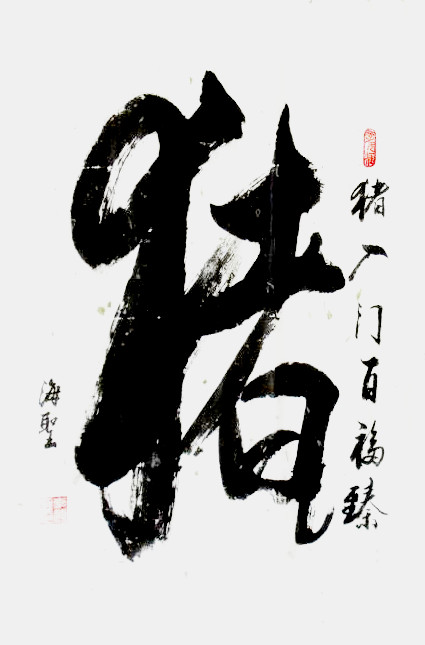 猪
猪入门百福臻
海聖